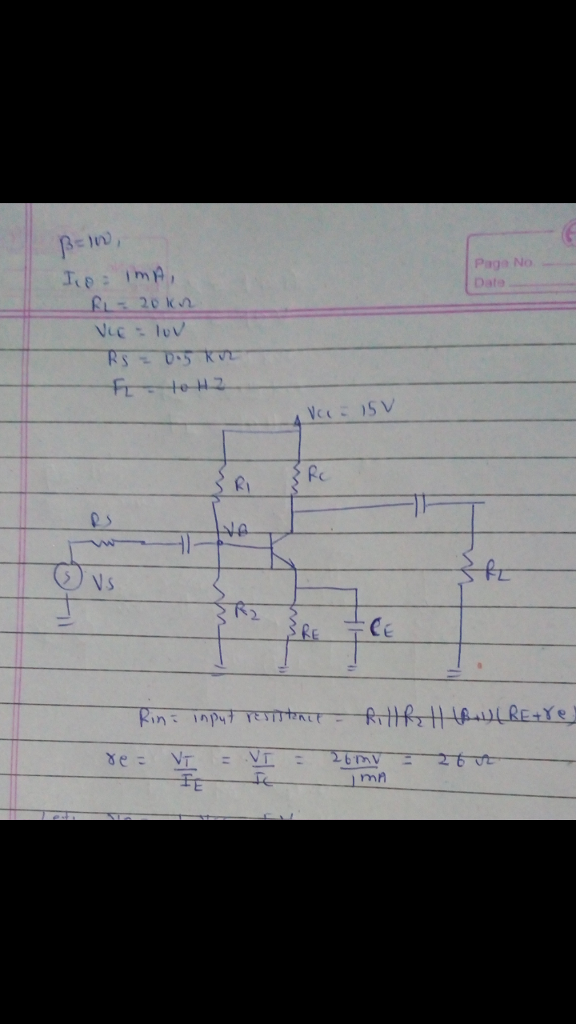 β=100,
ICQ = 1mA,
Page No.
Date
RL = 20 KΩ
VCC = 10V
RS = 0.5 KΩ
FL = 10 HZ
VCC = 15V
R1
RC
RS
VB
VS
RL
R2
RE
CE
Rin = input resistance = R1||R2||(β+1)(RE+re)
re = VT/IE = VT/IC = 26mV/1mA = 26 Ω